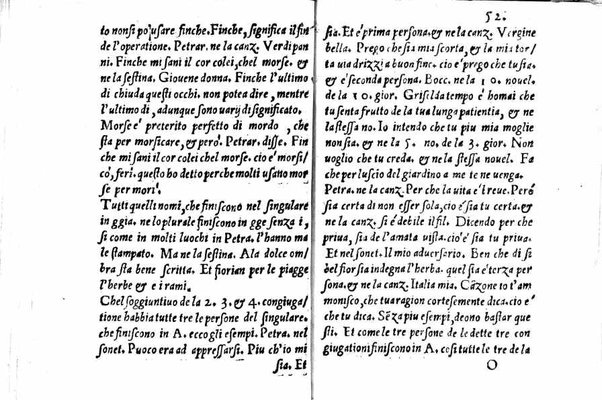 to non si po usare finche. Finche, significa il fin
de l'operatione. Petrar. ne la canz. Verdi pan
ni. Finche mi sani il cor colei, chel morse. &
ne la sestina. Giouene donna. Finche l'ultimo
di chiuda questi occhi. non potea dire, mentre
l'ultimo di, adunque sono uarij di significato.
Morse è preterito perfetto di mordo, che
sta per morsicare, & però. Petrar. disse. Fin
che mi sani il cor colei chel morse. cio è morsi
cò, ferì. questo ho detto perche molti usano mor
se per morì.
Tutti quelli nomi, che finiscono nel singulare
in ggia. ne lo plurale finiscono in gge senza i,
si come in molti luochi in Petra. l'hanno ma
le stampato. Ma ne la sestina. A la dolce om/
bra sta bene scritta. Et fiorian per le piagge
l'herbe & i rami.
Chel soggiuntiuo de la 2. 3. & 4. coniuga/
tione habbia tutte tre le persone del singulare.
che finiscono in A. ecco gli esempi. Petra. nel
sonet. Puoco era ad appressarsi. Piu ch'io mi
sia. Et
52.
sia. Et è prima persona. & ne la canz. Vergine
bella. Prego che sia mia scorta, & la mia tor/
ta uia drizzi a buon fine. cio è prego che tu sia.
& è seconda persona. Bocc. ne la 10. nouel.
de la 10. gior. Griselda tempo è homai che
tu senta frutto de la tua lunga patientia, & ne
la stessa no. Io intendo che tu piu mia moglie
non sia. & ne la 5. no. de la 3. gior. Non
uoglio che tu creda. & ne la stessa nouel. Fa
che per luscio del giardino a me te ne uenga.
Petra. ne la canz. Per che la uita è breue. Però
sia certa di non esser sola, cio è sia tu certa. &
ne la canz. Si è debile il fil. Dicendo per che
priua, sia de l'amata uista. cio è sia tu priua.
Et nel sonet. Il mio aduersario. Ben che di si
bel fior sia indegna l'herba. quel sia è terza per
sona. & ne la canz. Italia mia. Cāzone to t'am
monisco, che tua ragion cortesemente dica. cio è
che tu dica. Sēza piu esempi, deono bastar que
sti. Et come le tre persone de le dette tre con
iugationi finiscono in A. cosi tutte le tre de la
O